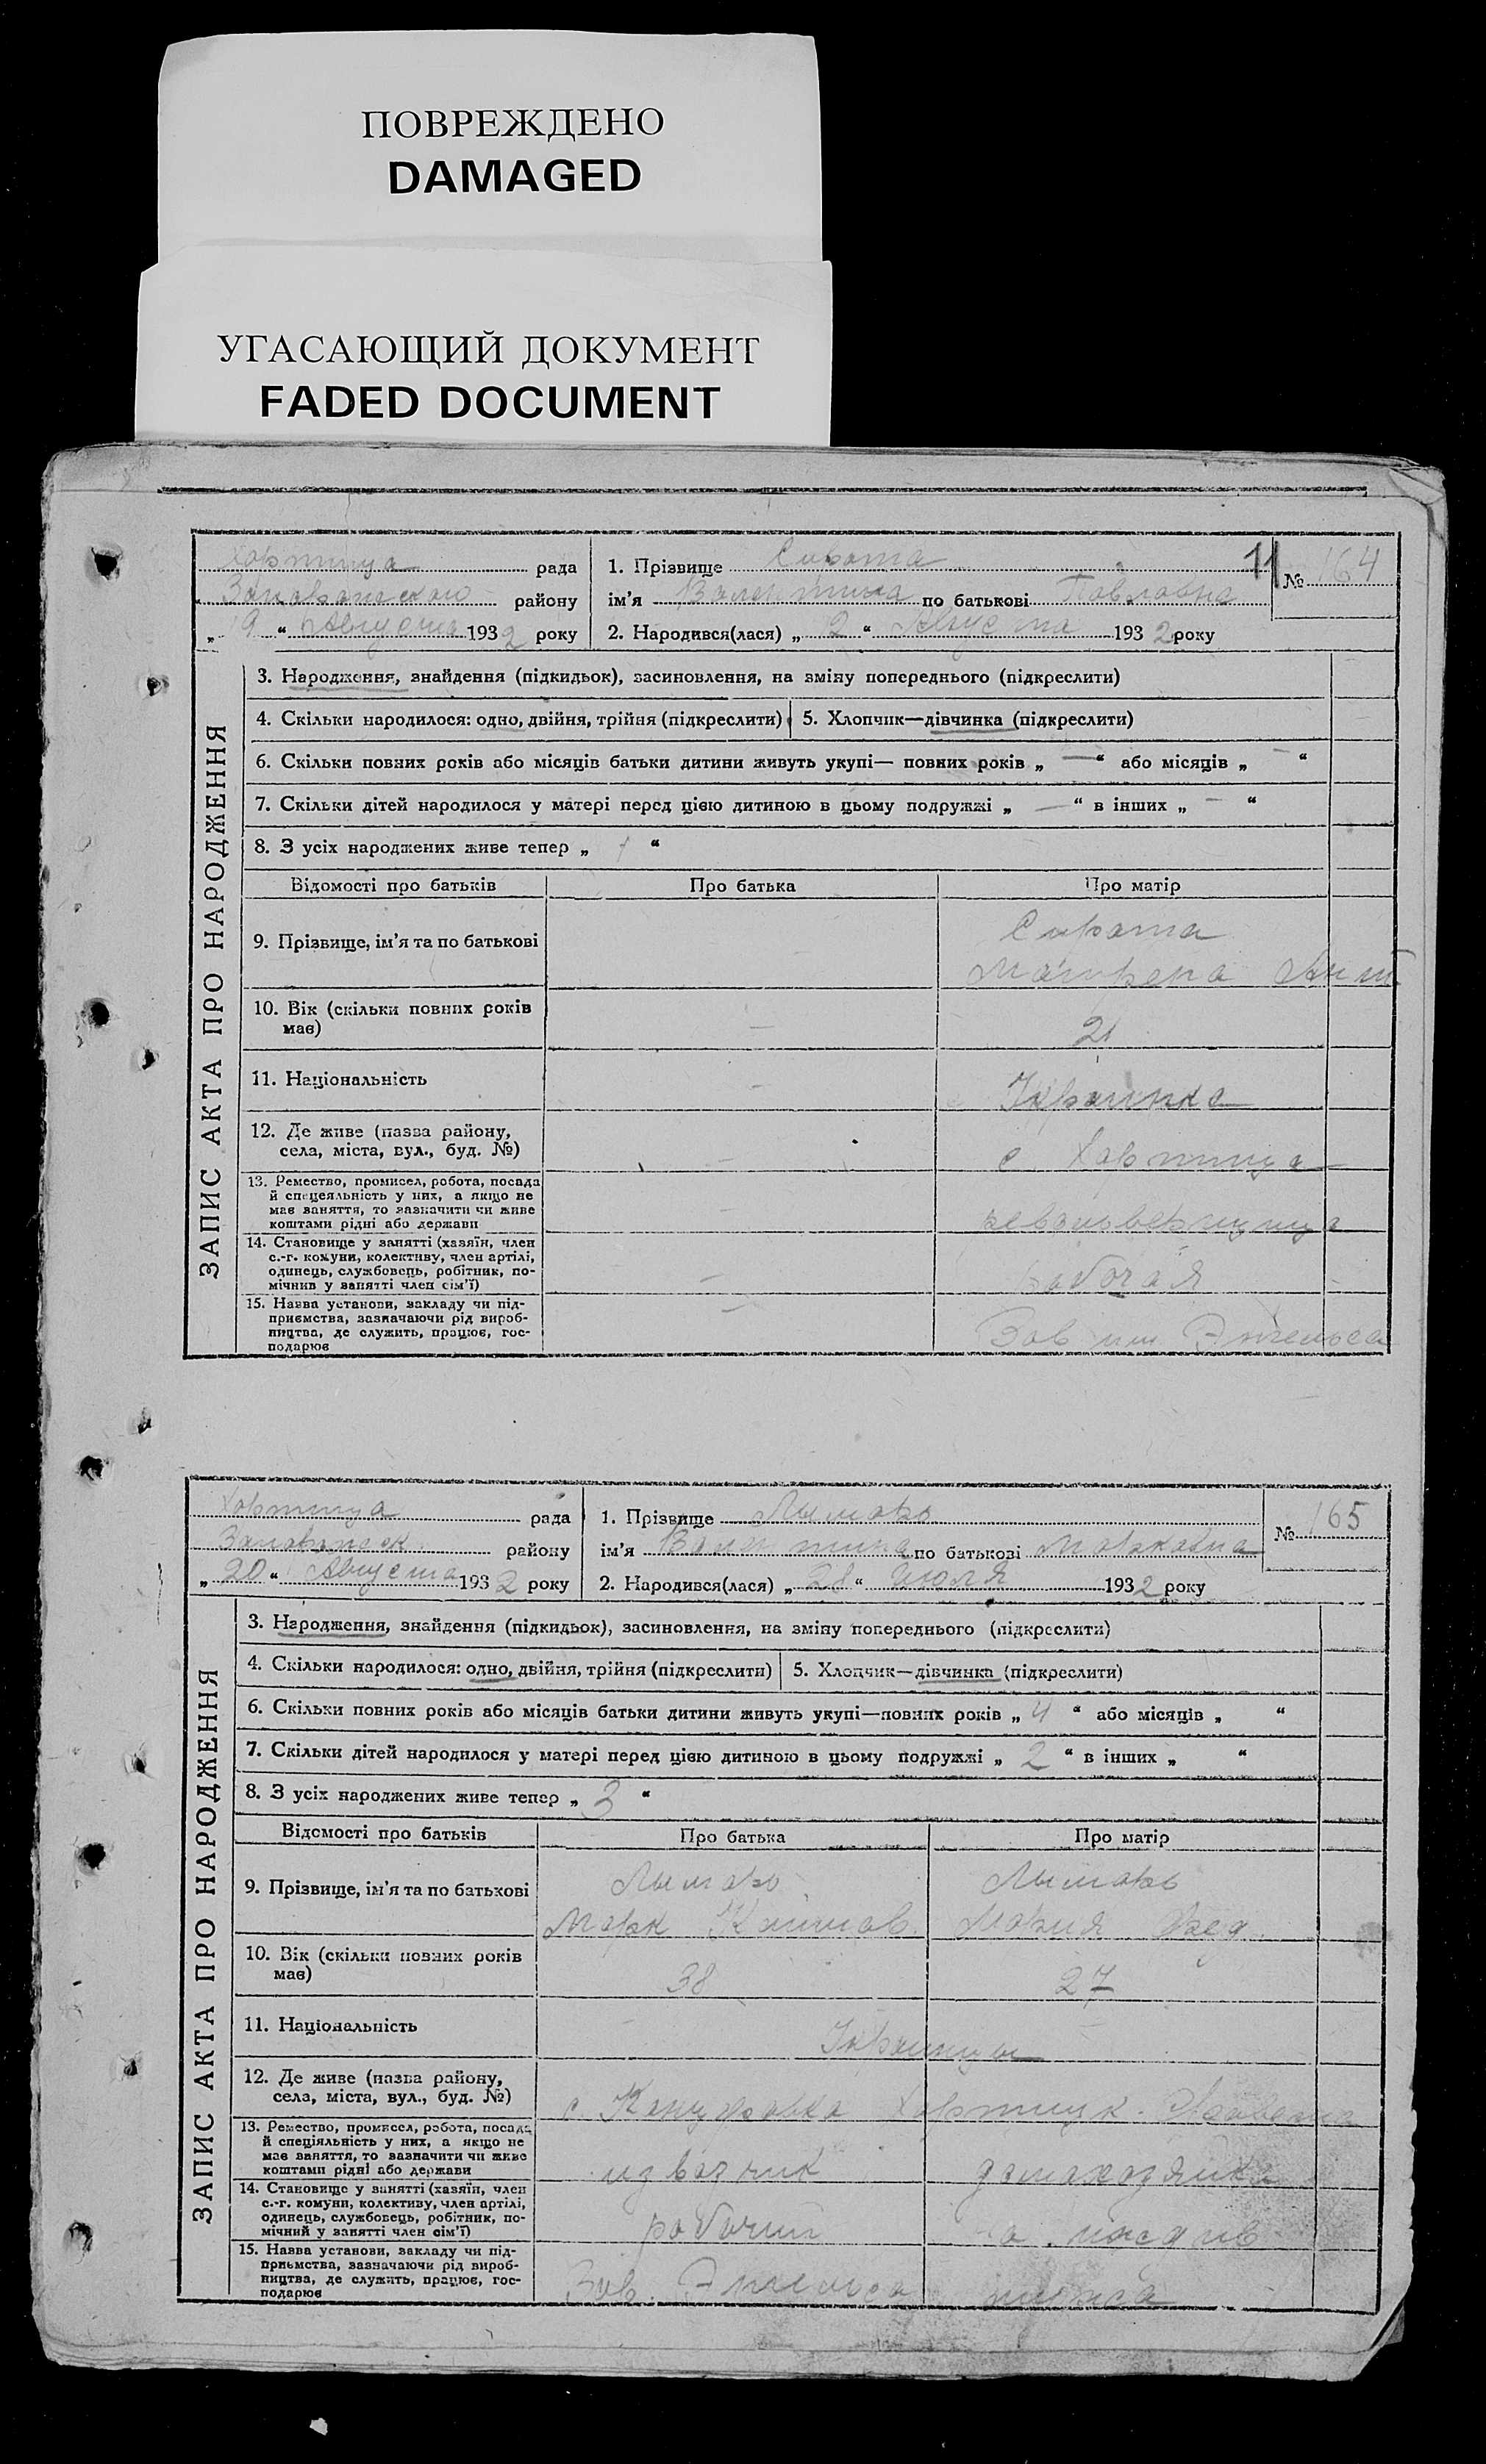 ПОВРЕЖДЕНО
DAMAGED
УГАСАЮЩИЙ ДОКУМЕНТ
FADED DOCUMENT
11
Хортица рада
Запорожском району
„ 9 “ Августа 1932 року
1. Прізвище Сирота № 164
ім’я Валентина по батькові Павловна
2. Народився(лася) „ 2 “ Августа 1932 року
ЗАПИС АКТА ПРО НАРОДЖЕННЯ
3. Народження, знайдення (підкидьок), засиновлення, на зміну попереднього (підкреслити)
4. Скільки народилося: одно, двійня, трійня (підкреслити) 5. Хлопчик—дівчинка (підкреслити)
6. Скільки повних років або місяців батьки дитини живуть укупі— повних років „ — “ або місяців „ — “
7. Скільки дітей народилося у матері перед цією дитиною в цьому подружжі „ — “ в інших „ — “
8. З усіх народжених живе тепер „ 1 “
Відомості про батьків Про батька Про матір
9. Прізвище, ім’я та по батькові
Сирота
Матрена Ант
10. Вік (скільки повних років
має) — 21
11. Національність — Украинка
12. Де живе (назва району,
села, міста, вул., буд. №) — с Хортица
13. Ремество, промисел, робота, посада
й спецеяльність у них, а якщо не
має заняття, то зазначити чи живе
коштами рідні або держави — револьверщица
14. Становище у занятті (хазяїн, член
с.-г. комуни, колективу, член артілі,
одинець, службовець, робітник, по-
мічник у занятті член сім’ї) — рабочая
15. Назва установи, закладу чи під-
приємства, зазначаючи рід вироб-
ництва, де служить, працює, гос-
подарює — Зав им Энгельса
Хортица рада
Запорожск. району
„ 20 “ Августа 1932 року
1. Прізвище Лымарь № 165
ім’я Валентина по батькові Марковна
2. Народився(лася) „ 28 “ Июля 1932 року
ЗАПИС АКТА ПРО НАРОДЖЕННЯ
3. Народження, знайдення (підкидьок), засиновлення, на зміну попереднього (підкреслити)
4. Скільки народилося: одно, двійня, трійня (підкреслити) 5. Хлопчик—дівчинка (підкреслити)
6. Скільки повних років або місяців батьки дитини живуть укупі—повних років „ 4 “ або місяців „ “
7. Скільки дітей народилося у матері перед цією дитиною в цьому подружжі „ 2 “ в інших „ “
8. З усіх народжених живе тепер „ 3 “
Відомості про батьків Про батька Про матір
9. Прізвище, ім’я та по батькові
Лымарь Лымарь
Марк Мария Фед.
10. Вік (скільки повних років
має) 38 27
11. Національність Украинцы
12. Де живе (назва району,
села, міста, вул., буд. №) с Канцеровка Хортицк.
13. Ремество, промисел, робота, посада
й спеціяльність у них, а якщо не
має заняття, то зазначити чи живе
коштами рідні або держави извозчик домахозяйка
14. Становище у занятті (хазяїн, член
с.-г. комуни, колективу, член артілі,
одинець, службовець, робітник, по-
мічний у занятті член сім’ї) рабочий на иждив
15. Назва установи, закладу чи під-
приємства, зазначаючи рід вироб-
ництва, де служить, працює, гос-
подарює Зав. Энгельса мужа